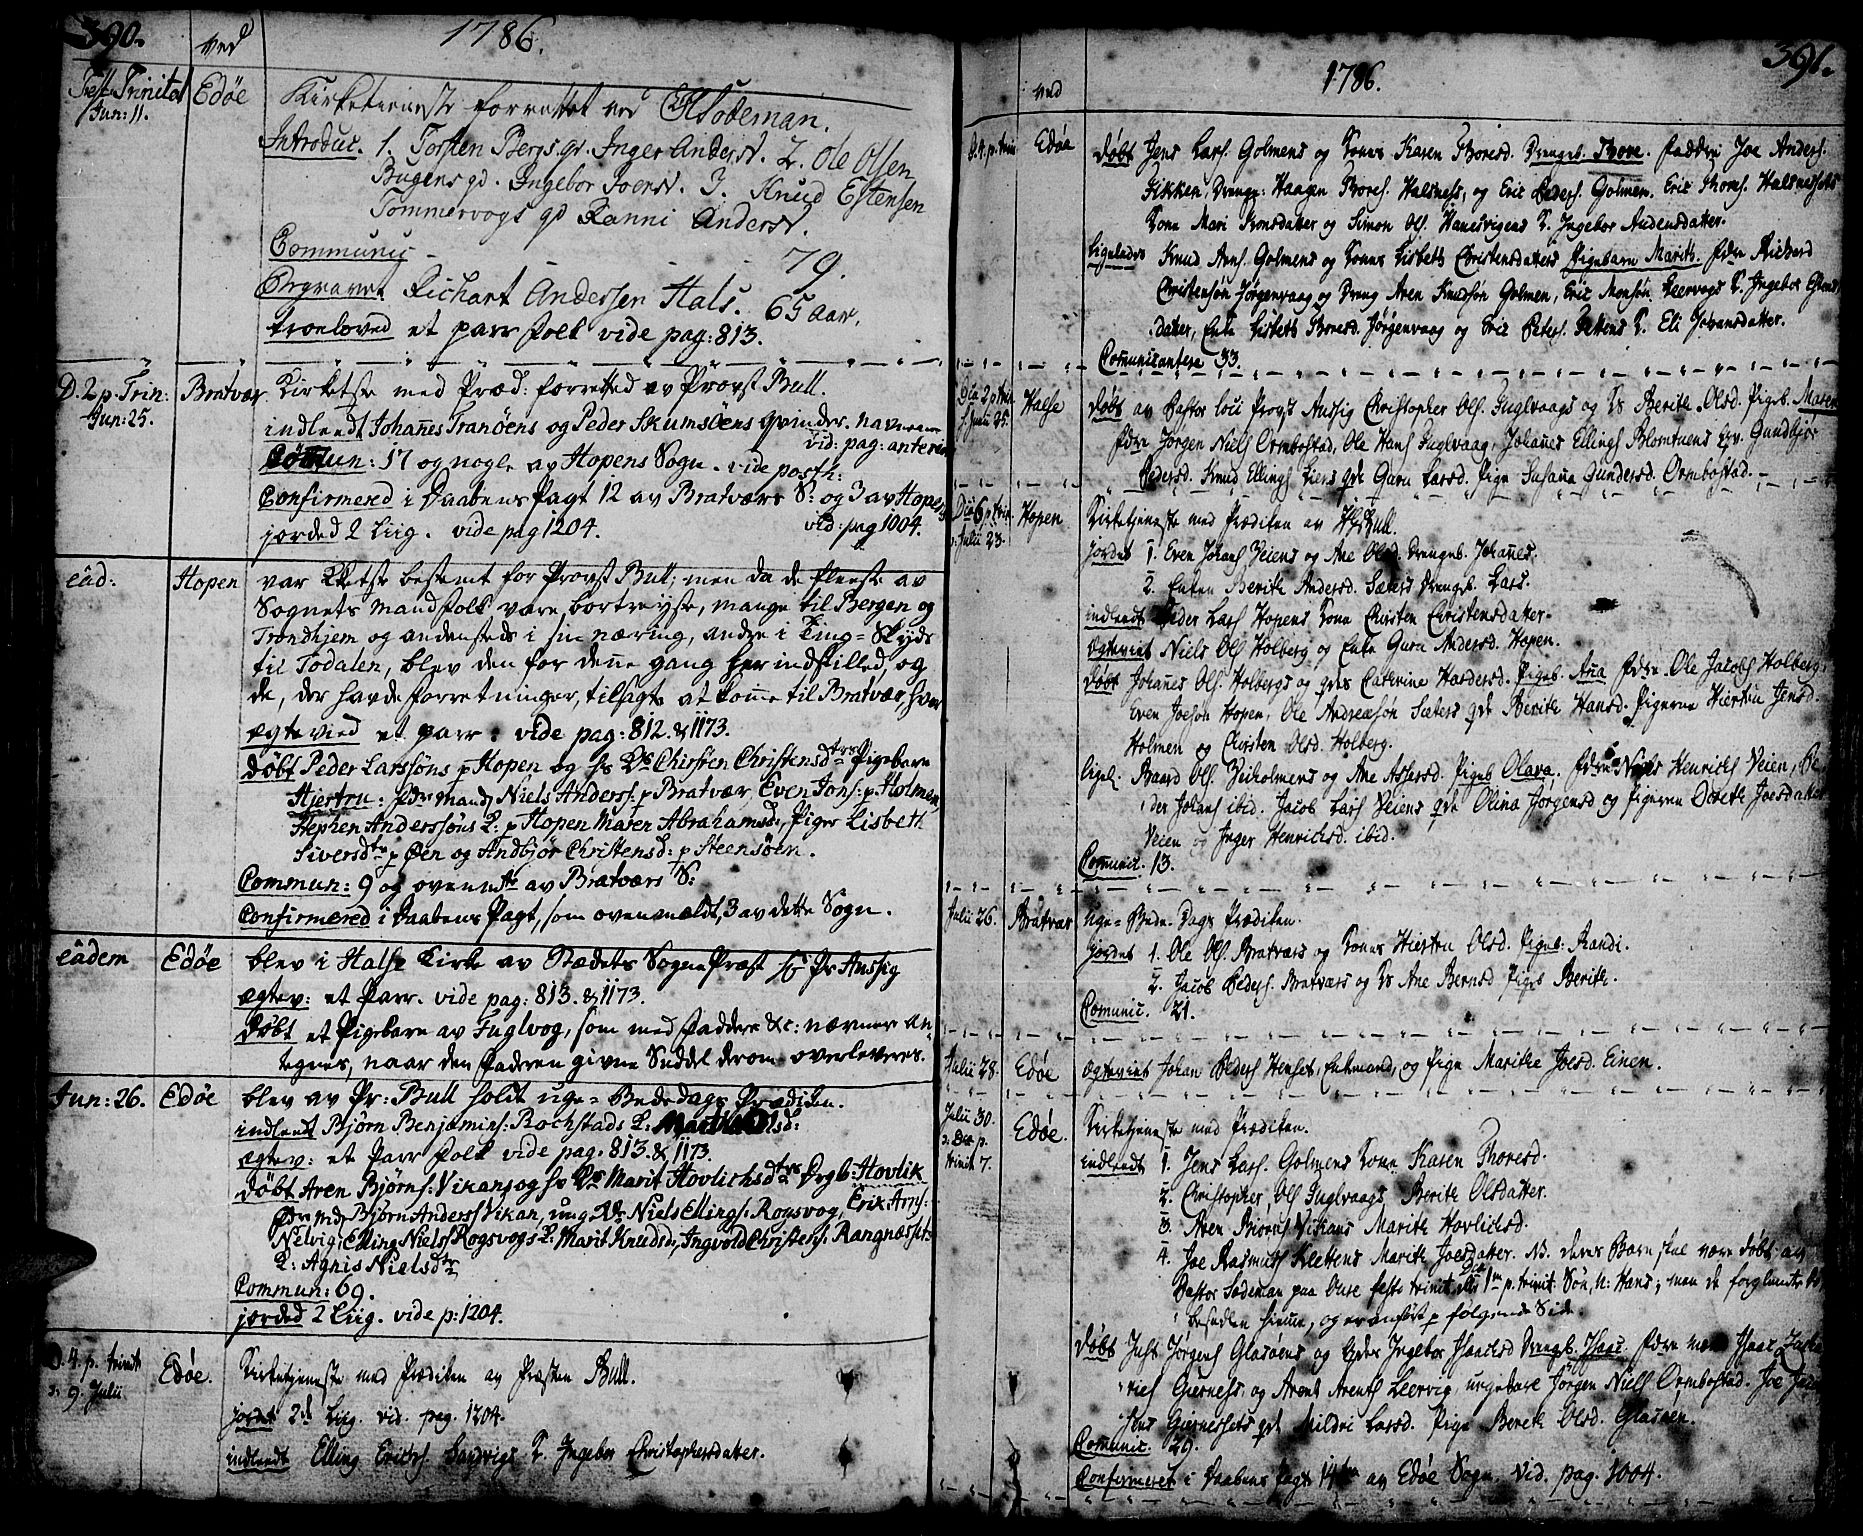 390. ved 1786.
Fest: Trinitat Edøe Kirketieneste forrettet ved Sodeman.
Jun: 11. Introduc. 1. Torsten Bergs gr. Inger Andersd. 2. Ole Olsen
Bugens gd. Ingebor Joersd. 3. Knud Estensen
Tommervogs gd Ranni Andersd.
Communic - - - 79.
Begravet Richart Andersen Hals. 65 aar.
troeloved et parr folk vide pag: 813.
D. 2 p. Trin: Bratvær Kirketste med Præd: forretted av Provst Bull.
Jun: 25. indleedt Johañes Tranöens og Peder Skumsöens qvinder. navnene
vid: pag: anterior
Comun: 17 og nogle av Hopens Sogn. vide posth:
Confirmered i Daabens Pagt 12 av Bratværs S: og 3 av Hopens
jorded 2 Liig. vide pag 1204. vid: pag 1004.
eâd: Hopen var Kketste bestemt for Provst Bull; men da de fleeste av
Sognets mandfolk vare bortreyste, mange til Bergen og
Trondhjem og andensteds i sin næring, andre i Ting= Skyds
til Todalen, blev den for deñe gang her indstilled, og
de, der havde forretninger, tilsagte at koñe til Bratvær, hvor
ægteviед et parr: vide pag: 812. & 1173.
døbt Peder Larssöns p Hopen og hs Ks Chirsten Christensdtrs Pigebarn
Hjertru: fdre mand Niels Anders: p Bratvær, Even Jons: p Holmen
Stephen Anderssöns K: p Hopen Maren Abrahamsd:, Piger Lisbeth
Siversdtr p Øen og Andbjør Christensd: p Steensöen.
Commun: 9 og ovenmte av Bratværs S:
Confirmered i Daabens Pagt, som ovenmældt, 3 av dette Sogn.
eâdem Edøe blev i Halse Kirke av Stædets SognePræst Hr Pr Aussig
ægtev: et Parr. vide pag: 813. & 1173.
døbt et Pigebarn av Fuglvog, som med faddere &c: nærmere an-
tegnes, naar den Fadren givne Seddel derom overleveres.
Jun: 26. Edøe blev av Pr: Bull holdt uge= Bededags Prædiken.
indleedt Bjørn Benjamins: Rochstads K: Marit Olsd:
ægtev: et Parr Folk vide pag. 813. & 1173.
døbt Aren Bjørns: Vikans og hs Ks Marit Hovlichsdtrs Drgb: Hovlik
fdre mdr Bjørn Anders Vikan, ung Kr Niels Ellings: Rogsvog, Erik Arns:
Nelvig; Elling Niels: Rogsvogs K: Marit Knudsdr, Ingvold Christens: Rangnæsset
K: Agnis Nielsdtr
Commun: 69.
jorded 2 Liig. vide p: 1204.
D. 4. p. trinit Edøe. Kirketjeneste med Prædiken av Præsten Bull.
9. Julii jordet 2de Liig. vid. pag. 1204.
indleedt Elling Erichs. Sandvigs K. Ingebor Christophersdatter.
391.
ved 1786.
D. 4. p. trin Edøe døbt Jens Lars. Golmens og Kones Karen Thoresd. Drengeb. Thore. faddre Joe Anders.
Fikken, Drenge: Haagen Thores. Halsness, og Eric Peders. Golmen. Eric Thores. Halsnessets
Kone Mari Jonsdatter og Simon Ols. Hanesvigens K. Ingebor Audensdatter.
Ligeledes Knud Arns. Golmens og Kones Lisbett Christensdatters Pigebarn Marith. fdre Richard
Christensøn Jørgenvaag og Dreng Aren Knudsøn Golmen, Eric Monsøn Leervogs K. Ingebor
datter, Enke Lisbeth Thoresd. Jørgenvaag og Eric Peters. Fettens K. Eli Johansdatter.
Comunicantere 33.
Dia 2 p trin Halse døbt av Pastor loci Provst Aussig Christopher Ols. Fuglvaags og Ks Berite Olsd. Pigeb. Maren
s. Junii 25. fdre Jørgen Niels Ormbostad, Ole Hans Fuglvaag, Johañes Ellings Blomtuens Gundbjør
Pedersd. Knud Ellings Liens qde Guru Larsd. Pige Susaña Gundersd. Ormbostad.
Dia 6 p trin Hopen Kirketjeneste med Prædiken av Hr Bull.
s. Julii 23. jordet 1. Even Johans Veiens og Ane Olsd. Drengeb. Johañes.
2. Enken Berite Andersd. Sæters Drengeb. Lars.
indleedt Peder Lars Hopens Kone Chirsten Christensdatter.
ægteviet Niels Ols Holberg og Enke Guru Andersd. Hopen.
døbt Johañes Ols. Holbergs og qdes Catrine Hardersd. Pigeb. Aña fdre. Ole Jacobs Holberg,
Even Joesøn Hopen, Ole Andreæsøn Sæters qde Berite Hansd. Pigerne Hiertru Jensd.
Holmen og Chirsten Olsd. Holberg.
Ligel. Baard Ols. Veiholmens og Ane Assersd. Pigeb Olava. fdre Niels Henrichs Veien, Pe-
der Johans ibid. Jacob Lars Veiens qde Olina Jørgensd og Pigerne Dorete Joesdatter
Veien og Inger Henrichsd. ibid.
Comunic. 13.
Julii 26. Bratvær uge= Bede- Dags Prædiken.
jordet 1. Ole Ols. Bratværs og Kones Hiertru Olsd. Pigeb: Randi.
2. Jacob Peders. Bratværs og Ks Ane Bernsd. Pigeb Berite.
Comunic. 21.
Julii 28. Edøe ægteviet Johan Peders Henset, Enkemand, og Pige Marite Joesd. Einen.
Julii 30. Edøe. Kirketjeneste med Prædiken.
s: Dca p. indleedt 1. Jens Lars. Golmens Kone Karen Thoresd.
trinit 7. 2. Christopher Ols Fuglvaags Berite Olsdatter.
3. Aren Biørns Vikans Marite Hovlichsd.
4. Joe Rasmus Klettens Marite Joesdatter. NB. deres Barn skal være døbt av
Pastor Sodeman paa Ouse festo trinit. Dca 1ma p. trinit. Søn, n: Hans; men de forglemte
besudlen hieme, og er anført p folgende Side
døbt Just Jørgens Glasøens og qdes Ingebor Isaachsd Drengeb. Isaac. fdre mænd Isaac
ries Giernæss, og Arent Arents Leervig, ungekare Jørgen Niels Ormbostad. Joe
sens Giernessets qde Mildri Larsd. Pige Berite Olsd. Glasøen.
Comunic. 29.
Confirmeret i Daabens Pagt 14ten av Edøe Sogn. Vid. pag. 1004.